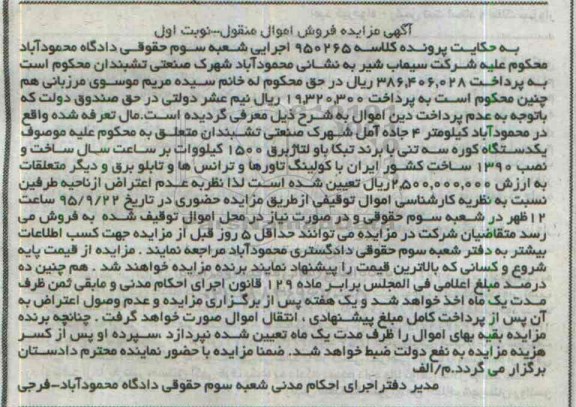 آگهی مزایده فروش اموال منقول-نوبت اول
به حکایت پرونده کلاسه ۹۵۰۲۶۵ اجرایی شعبه سوم حقوقی دادگاه محمودآباد
محکوم علیه شرکت سیماب شیر به نشانی محمودآباد شهرک صنعتی تشبندان محکوم است
به پرداخت ۳۸۶,۴۰۶,۰۲۸ ریال در حق محکوم له خانم سیده مریم موسوی مرزبانی هم
چنین محکوم است به پرداخت ۱۹,۳۲۰,۳۰۰ ریال نیم عشر دولتی در حق صندوق دولت که
باتوجه به عدم پرداخت دین اموال به شرح ذیل معرفی گردیده است.مال تعرفه شده واقع
در محمودآباد کیلومتر ۴ جاده آمل شهرک صنعتی تشبندان متعلق به محکوم علیه موصوف
یکدستگاه کوره سه تنی با برند تبکا باو لتاژبرق ۱۵۰۰ کیلووات بر ساعت سال ساخت و
نصب ۱۳۹۰ ساخت کشور ایران با کولینگ تاورها و ترانس ها و تابلو برق و دیگر متعلقات
به ارزش ۲,۵۰۰,۰۰۰,۰۰۰ریال تعیین شده است لذا نظربه عدم اعتراض ازناحیه طرفین
نسبت به نظریه کارشناسی اموال توقیفی ازطریق مزایده حضوری در تاریخ ۹۵/۹/۲۲ ساعت
۱۲ظهر در شعبه سوم حقوقی و در صورت نیاز در محل اموال توقیف شده به فروش می
رسد متقاضیان شرکت در مزایده می توانند حداقل ۵ روز قبل از مزایده جهت کسب اطلاعات
بیشتر به دفتر شعبه سوم حقوقی دادگستری محمودآباد مراجعه نمایند . مزایده از قیمت پایه
شروع و کسانی که بالاترین قیمت را پیشنهاد نمایند برنده مزایده خواهند شد . هم چنین ده
درصد مبلغ اعلامی فی المجلس برابر ماده ۱۲۹ قانون اجرای احکام مدنی و مابقی ثمن ظرف
مدت یک ماه اخذ خواهد شد و یک هفته پس از برگزاری مزایده و عدم وصول اعتراض به
آن پس از پرداخت کامل مبلغ پیشنهادی ، انتقال اموال صورت خواهد گرفت . چنانچه برنده
مزایده بقیه بهای اموال را ظرف مدت یک ماه تعیین شده نپردازد ،سپرده او پس از کسر
هزینه مزایده به نفع دولت ضبط خواهد شد. ضمنا مزایده با حضور نماینده محترم دادستان
برگزار می گردد.م/الف
مدیر دفتراجرای احکام مدنی شعبه سوم حقوقی دادگاه محمودآباد-فرجی